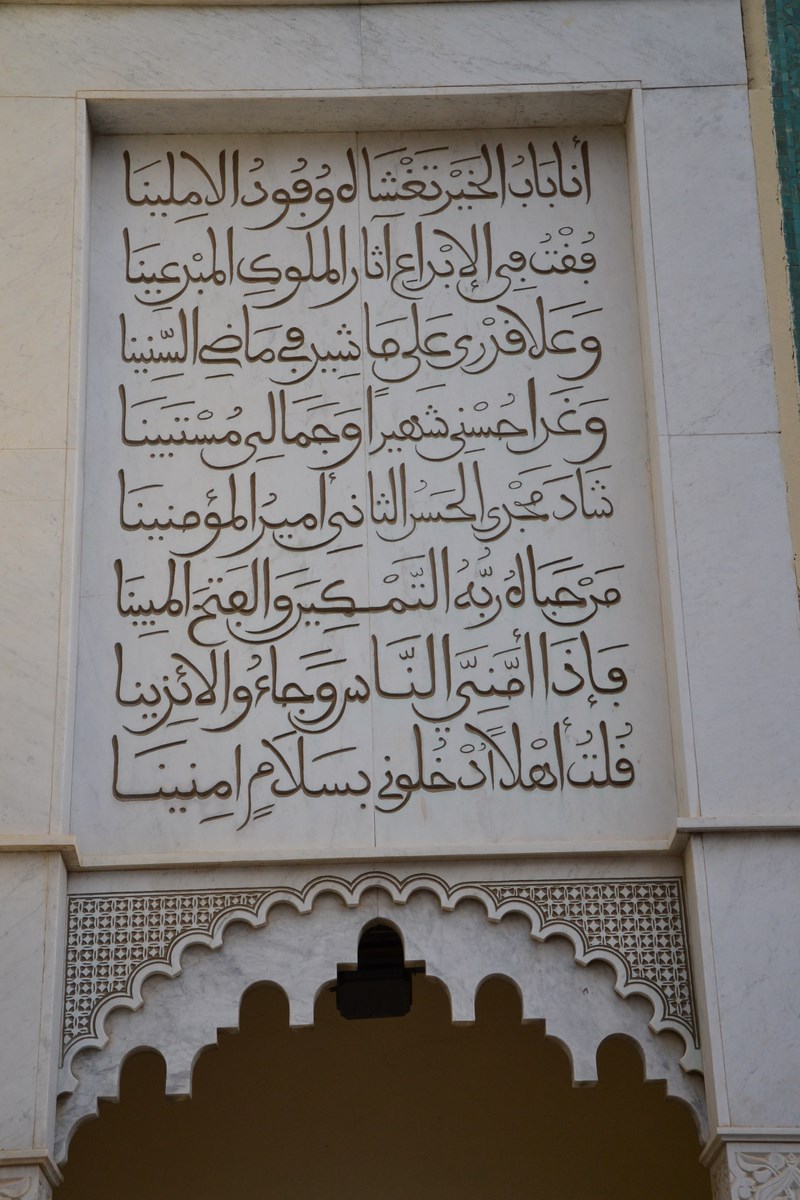 أنا باب الخَيْر تَغْشَاه وُفُودُ الامِلِينَا
فُقْتُ فِي الإبْداع آثار الملوكِ المبْدعِينَا
وَعَلا قَدْرِي عَلى مَا شِيدَ فِي مَاضِي السِّنِينا
وَغَدا حُسْنِي شَهيراً وَجَمالِي مُسْتَبَيَنا
شَادَ مَجْدِي الحَسَنُ الثانِي أميرُ المؤمنينا
مَنَحَ اللهُ رَبُّهُ التَّمْكِينَ وَالفَتحَ المُبِينَا
فَإذَا أمَّنِيَ النَّاسُ وَجَاءُوا لائِذِينا
قُلتُ أهْلاً اُدْخُلونِي بسَلاَمٍ امِنِينَا